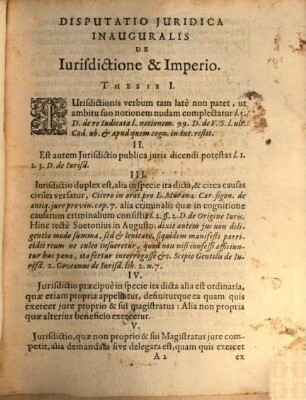 DISPUTATIO JURIDICA
INAUGURALIS
DE
Iurisdictione & Imperio.
THESIS I.
IUrisdictionis verbum tam latè non patet, ut
ambitu suo notionem nudam complectatur l. 5.
D. de re Iudicata l. notionem. 99. D. de V. S. l. ult.
Cod. ub. & apud quem cogn. in int. restit.
II.
Est autem Jurisdictio publica juris dicendi potestas l. 1.
2. 3. D. de Iurisd.
III.
Jurisdictio duplex est, alia in specie ita dicta, & circa causas
civiles versatur, Cicero in orat pro L. Murana Car. sigon. de
antiq. jure provin. cap. 7. alia criminalis quæ in cognitione
causarum criminalium consistit l. 2. §. 2. D de Origine Iuris.
Hinc rectè Suetonius in Augusto: dixit autem jus non dili-
gentia modo summa, sed & lenitate, siquidem manifesti parri-
cidii reum ne culeo insueretur, quod non nisi confessi afficiun-
tur hac pœna, ita fertur interrogasse &c. Scipio Gentilis de Iu-
risd. 2. Goveanus de Iurisd. lib. 2. n. 7.
IV.
Jurisdictio præcipuè in specie ita dicta alia est ordinaria,
quæ etiam propria appellatur, definiturque ea quam quis
exercet jure proprio & sui magistratus: Alia non propria
quæ alterius beneficio exercetur.
V.
Jurisdictio, quæ non proprio & sui Magistratus jure com-
petit, alia demandata sive delegara est, quam quis exercet
A 2 ex